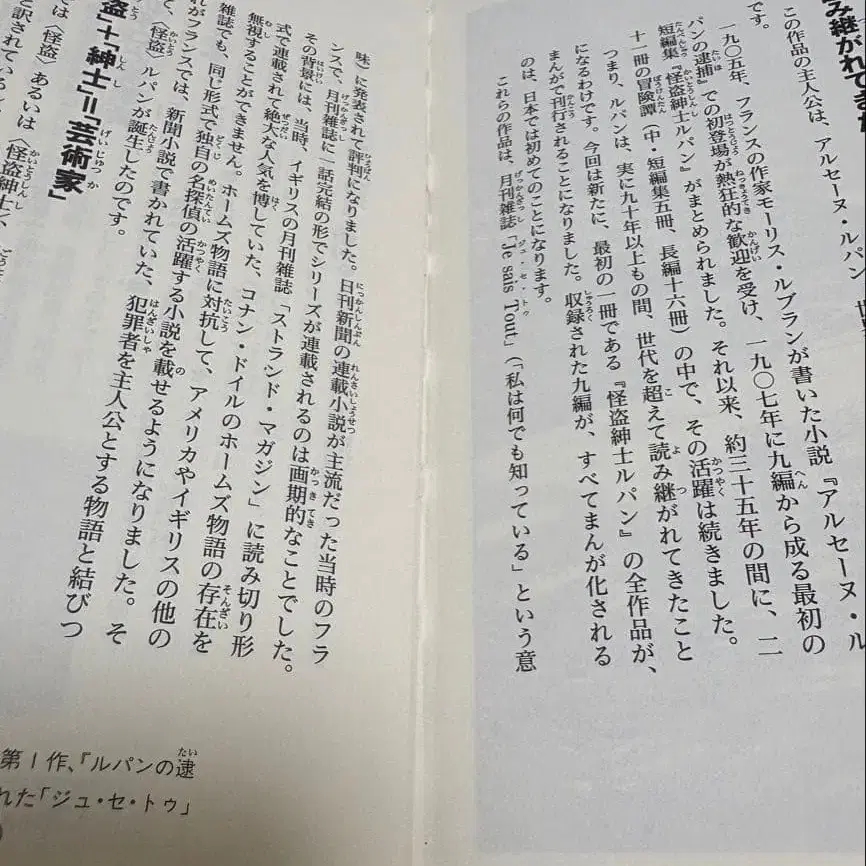 み継がれてきた
この作品の主人公は、アルセーヌ・ルパン。世
です。
一九〇五年、フランスの作家モーリス・ルブランが書いた小説『アルセーヌ・ル
パンの逮捕』での初登場が熱狂的な歓迎を受け、一九〇七年に九編から成る最初の
短編集『怪盗紳士ルパン』がまとめられました。それ以来、約三十五年の間に、二
十一冊の冒険譚(中・短編集五冊、長編十六冊)の中で、その活躍は続きました。
つまり、ルパンは、実に九十年以上もの間、世代を超えて読み継がれてきたこと
になるわけです。今回は新たに、最初の一冊である『怪盗紳士ルパン』の全作品が、
まんがで刊行されることになりました。収録された九編が、すべてまんが化される
のは、日本では初めてのことになります。
これらの作品は、月刊雑誌「Je sais Tout」(「私は何でも知っている」という意
味)に発表されて評判になりました。日刊新聞の連載小説が主流だった当時のフラ
ンスで、月刊雑誌に一話完結の形でシリーズが連載されるのは画期的なことでした。
その背景には、当時、イギリスの月刊雑誌「ストランド・マガジン」に読み切り形
式で連載されて絶大な人気を博していた、コナン・ドイルのホームズ物語の存在を
無視することができません。ホームズ物語に対抗して、アメリカやイギリスの他の
雑誌でも、同じ形式で独自の名探偵の活躍する小説を載せるようになりました。そ
れがフランスでは、新聞小説で書かれていた、犯罪者を主人公とする物語と結びつ
て、〈怪盗〉ルパンが誕生したのです。
盗」+「紳士」=「芸術家」
では〈怪盗〉あるいは〈怪盗紳士〉、
と訳されている
第1作、『ルパンの逮
れた「ジュ・セ・トゥ」